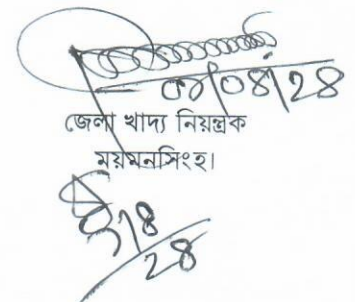 ০৮/০৪/২৪
জেলা খাদ্য নিয়ন্ত্রক
ময়মনসিংহ।